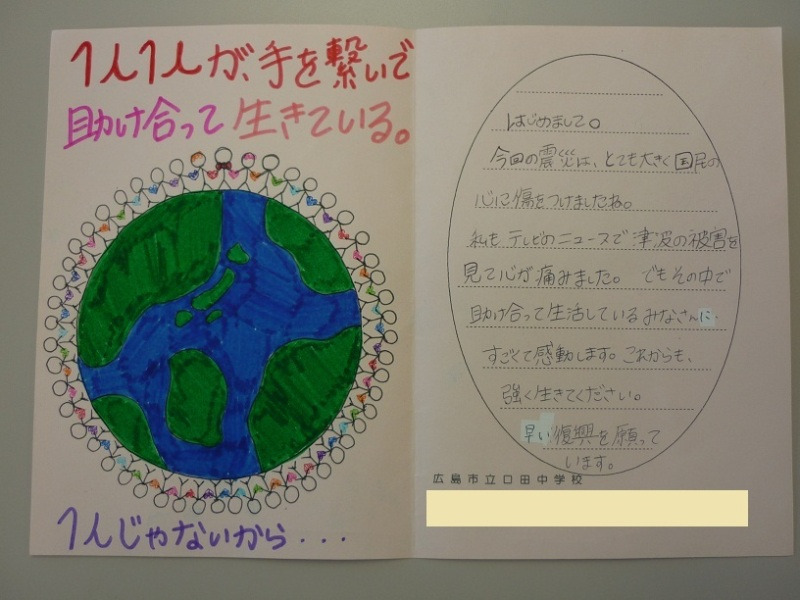 1人1人が、手を繋いで
助け合って生きている。
1人じゃないから...
はじめまして。
今回の震災は、とても大きく国民の
心に傷をつけましたね。
私もテレビのニュースで津波の被害を
見て心が痛みました。でもその中で
助け合って生活しているみなさんに、
すごくて感動します。これからも、
強く生きてください。
早い復興を願って
います。
広島市立口田中学校